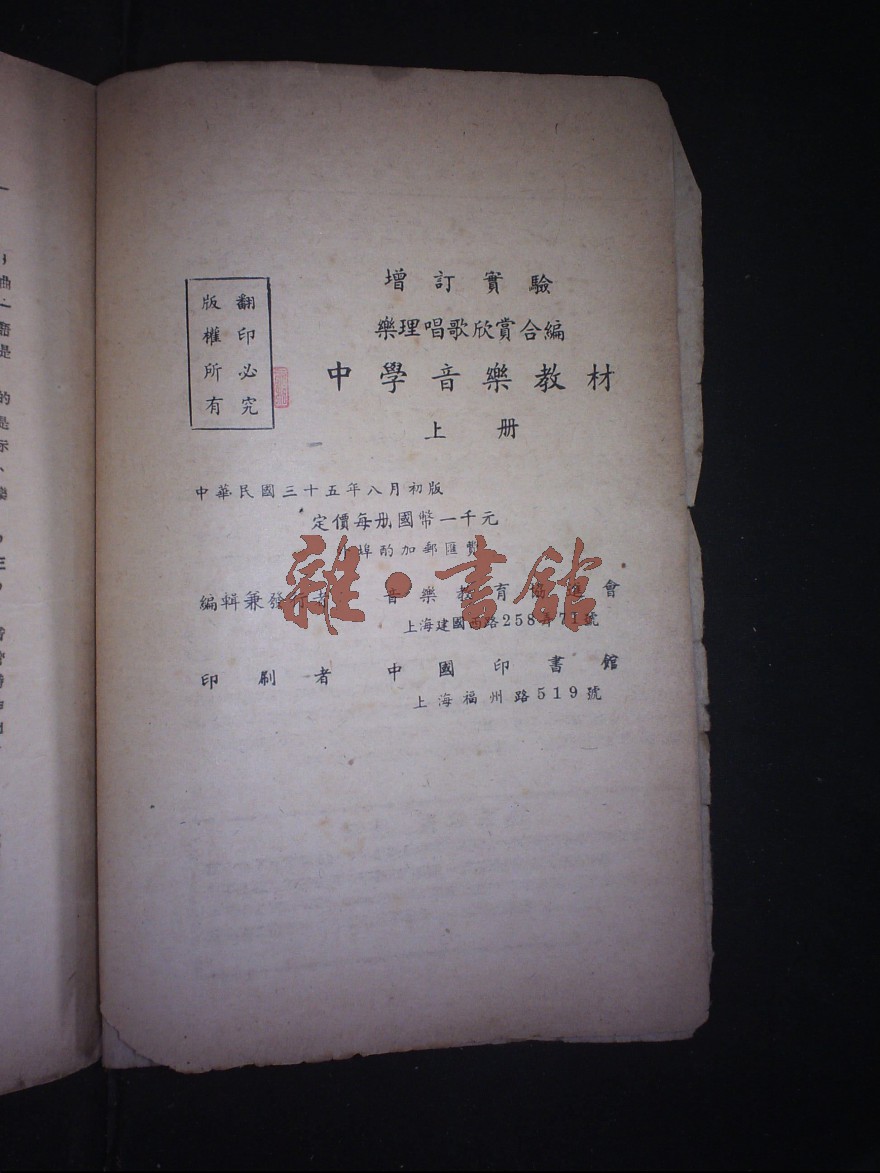 增訂實驗
樂理唱歌欣賞合編
中學音樂教材
上册
翻印必究
版權所有
中華民國三十五年八月初版
定價每册國幣一千元
埠酌加郵匯費
雜·書館
編輯兼發行者 音樂教育協進會
上海建國西路258弄71號
印刷者 中國印書館
上海福州路519號